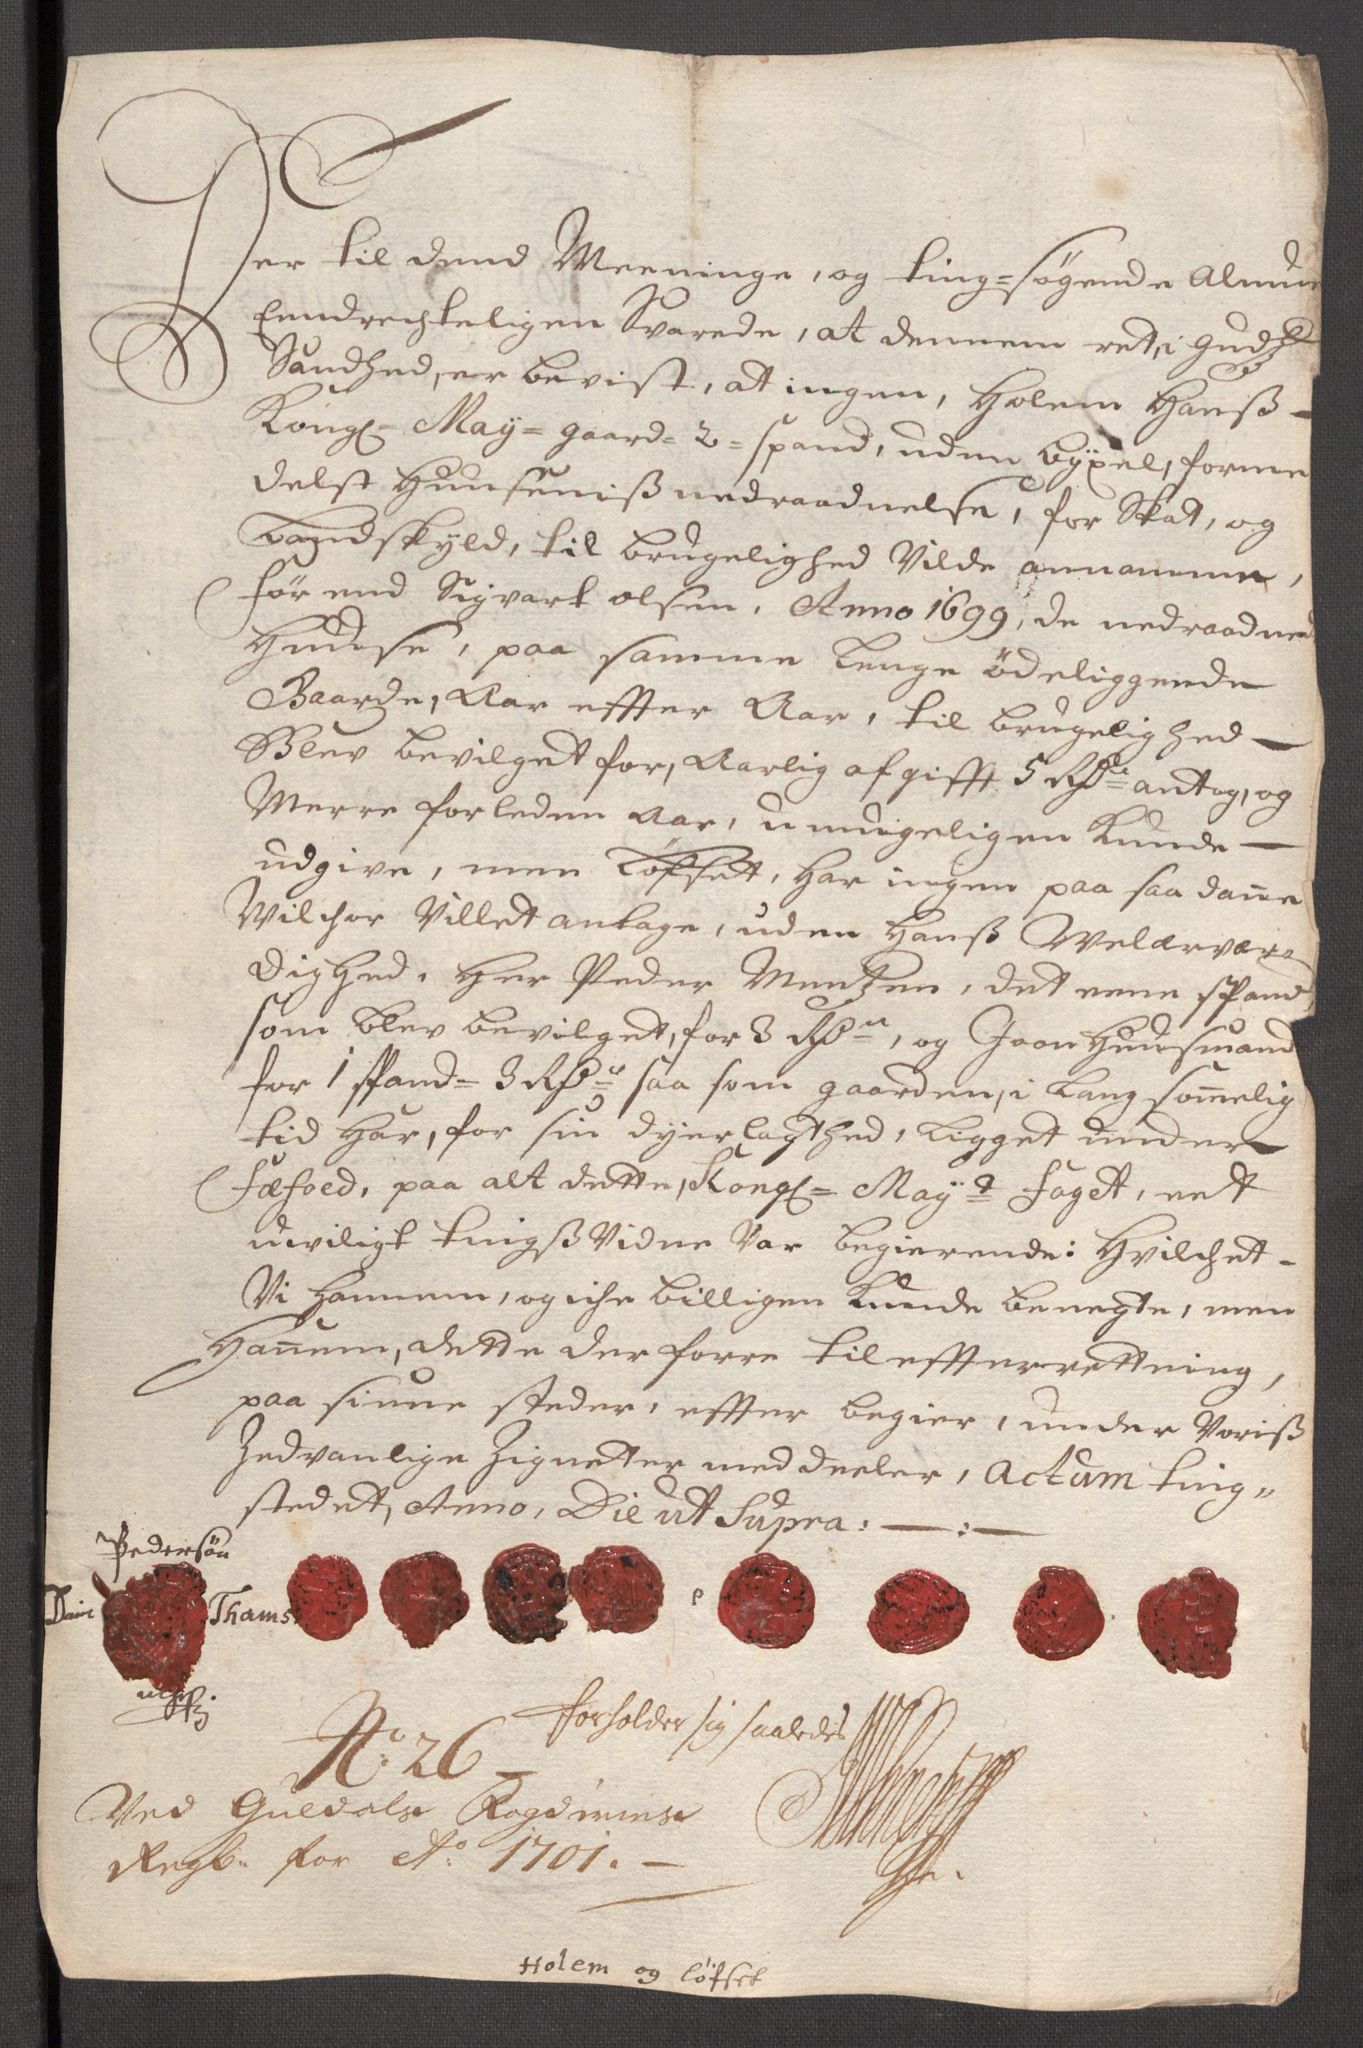 Der til dend Meeninge, og ting=søgende Almue
Eendrechteligen Svarede, at dennem ret, i Gudz
Sandhed, er bevist, at ingen, Holem Hanß
Kongl= May= gaard= 2= spand, uden byxel, forme
delst Huuseniß nedraadnelse, for Skat, og
Landskyld, til brugelighed Vilde annamme,
før end Sigvart olsen, Anno 1699, de nedraadned
Huuse, paa samme lenge ødeliggende
Gaarde, Aar effter Aar, til brugelighed
Blev bevilget for, Aarlig afgifft 5 Rdr antog, og
Merre forleden Aar, umuigeligen kunde
udgive, men Løfset, har ingen paa saadane
Wilchor Villet antage, uden Hanß Welærvær
dighed, Her Peder Mentzen, det eene spand
som blev bevilget, for 3 Rdr, og Joen Huusmand
for 1 spand= 3 Rdr saa som gaarden, i langsommelig
tid har, for sin dyerlagthed, ligget under
fæfoed, paa alt dette, Kongl= May:s foget, eet
uviligt tingß Vidne Var begierende: Hvilchet
Vi hannem, og iche billigen kunde benegte, men
Hannem, dette derforre til effterrettning,
paa sinne steder, effter begier, under Voriß
Zedvanlige Zignetter meddeeler, Actum ting
stedet, Anno, Die ut Supra:
Pedersøn
Thams
forholder sig saaledes
No 26
Ved Guldals Fogderies
Regb. for Ao 1701.
Holem og Løfset